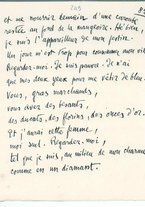 208
et me nourrir demain d'une carotte
restée au fond de la mangeoire. Hé bien,
je suis l'appareilleur de mon festin.
Un jour m'est trop pour consumer mon vide
Regardez-moi. Je suis pauvre. Je n'ai
que mes deux yeux pour me vêtir de bleu.
Vous, gros marchands,
vous avez des besants,
des ducats, des florins, des onces d'or.
Et j'aurai cette femme,
moi seul. Regardez-moi,
tel que je suis, au milieu de mon charme
comme en un diamant.